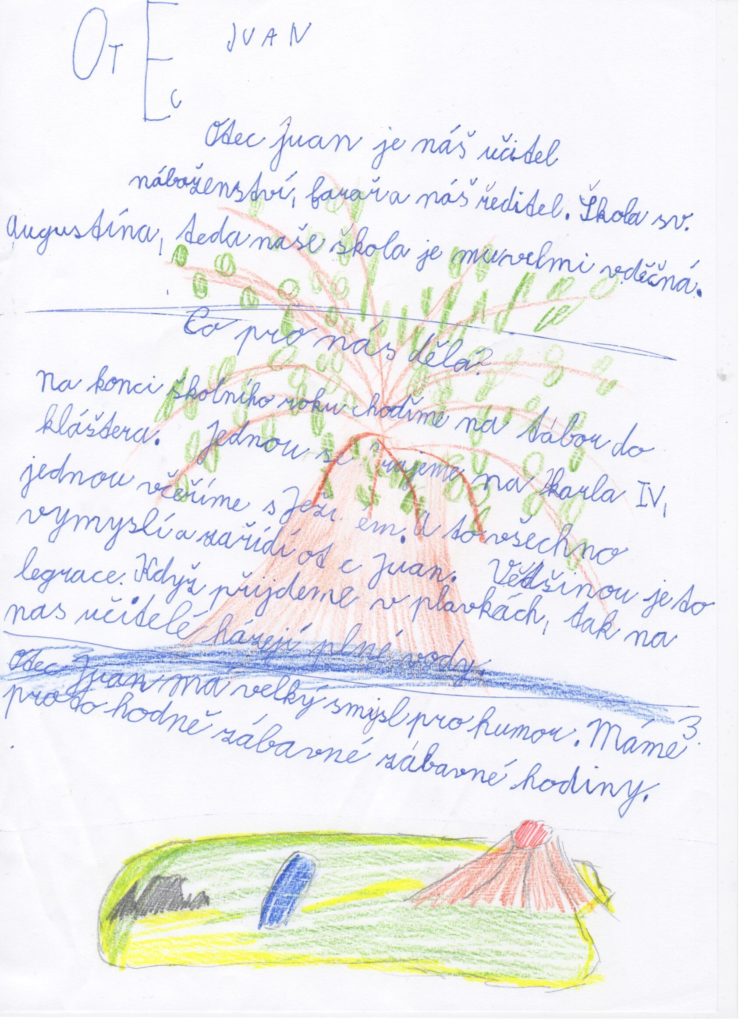 OTEC JUAN
Otec Juan je náš učitel
náboženství, farář a náš ředitel. Škola sv.
Augustína, teda naše škola je mu velmi vděčná.
Co pro nás dělá?
Na konci školního roku chodíme na tábor do
kláštera. Jednou si hrajeme na Karla IV,
jednou věčeříme s Ježíšem. A to všechno
vymyslí a zařídí otec Juan. Vědšinou je to
legrace. Když přijdeme v plavkách, tak na
nas učitelé házejí plné vody.
Otec Juan ma velký smysl pro humor. Máme
proto hodně zábavné zábavné hodiny.